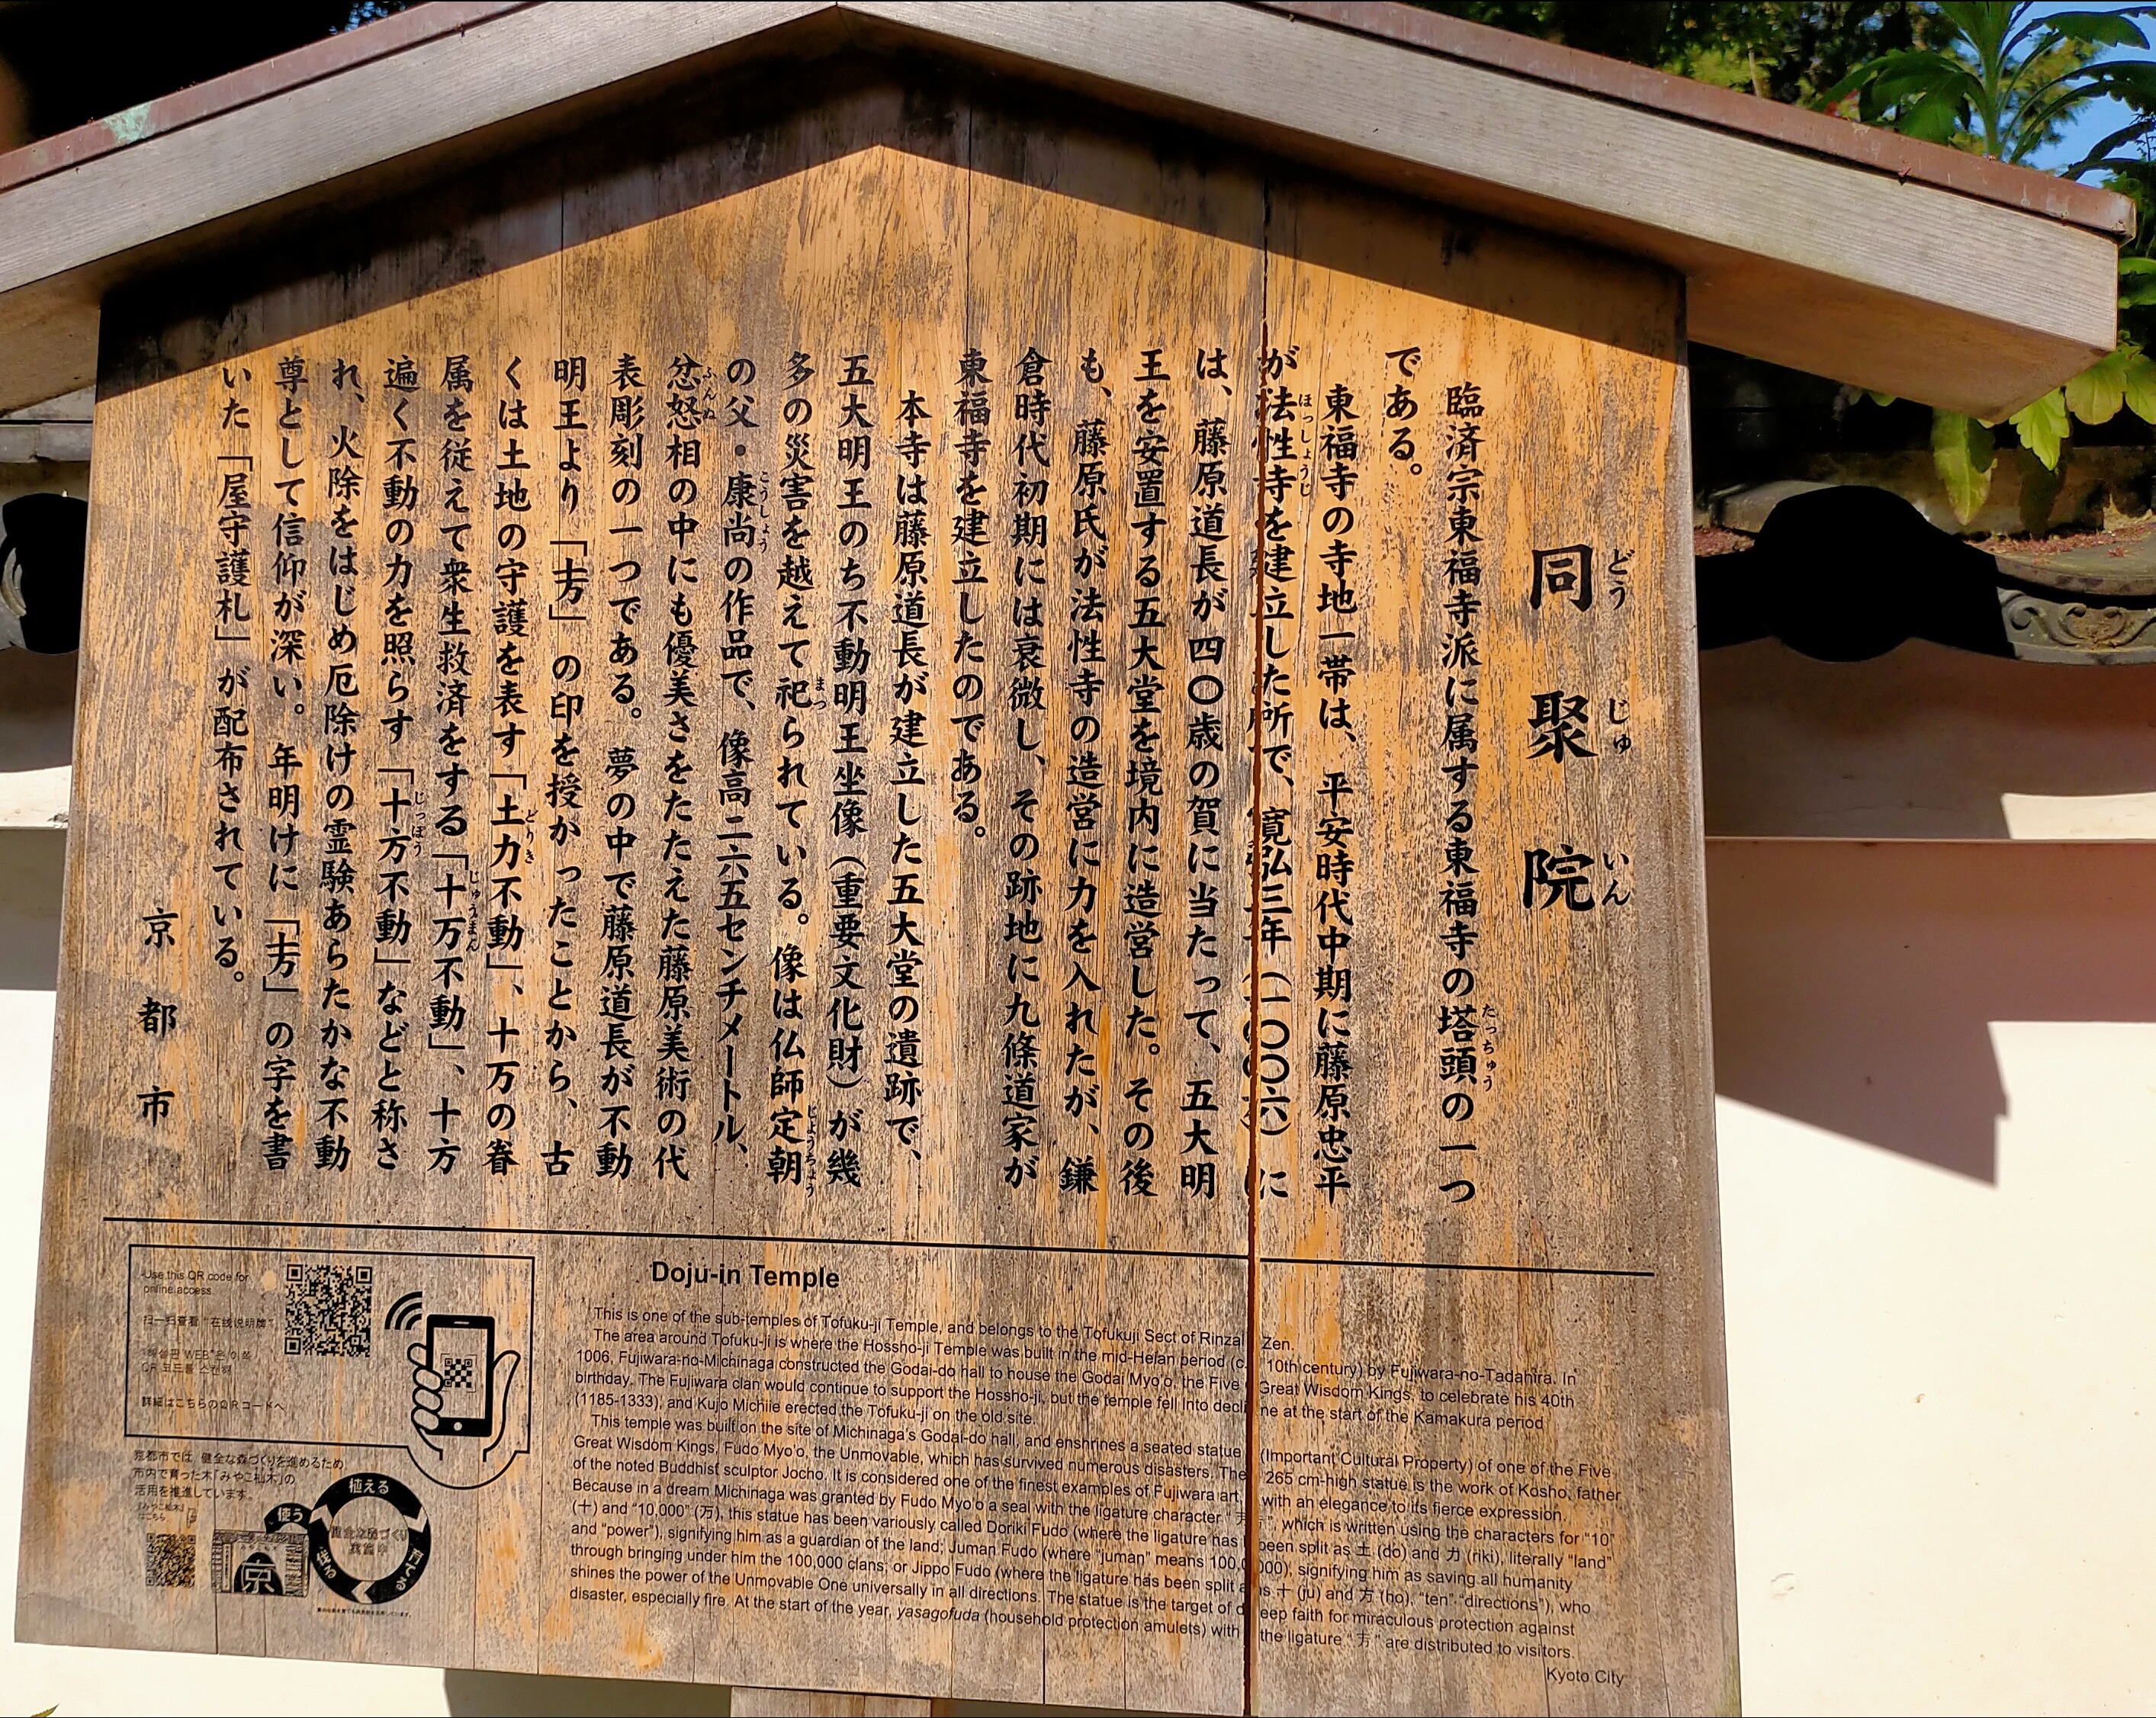 同聚院
どうじゅいん
臨済宗東福寺派に属する東福寺の塔頭の一つ
たっちゅう
である。
東福寺の寺地一帯は、平安時代中期に藤原忠平
が法性寺を建立した所で、寛弘三年(一〇〇六)に
ほっしょうじ
は、藤原道長が四〇歳の賀に当たって、五大明
王を安置する五大堂を境内に造営した。その後
も、藤原氏が法性寺の造営に力を入れたが、鎌
倉時代初期には衰微し、その跡地に九條道家が
東福寺を建立したのである。
本寺は藤原道長が建立した五大堂の遺跡で、
五大明王のち不動明王坐像(重要文化財)が幾
多の災害を越えて祀られている。像は仏師定朝
まつ
じょうちょう
の父・康尚の作品で、像高二六五センチメートル、
こうしょう
忿怒相の中にも優美さをたたえた藤原美術の代
ふんぬ
表彫刻の一つである。夢の中で藤原道長が不動
明王より「十万」の印を授かったことから、古
くは土地の守護を表す「土力不動」、十万の眷
どりき
属を従えて衆生救済をする「十万不動」、十方
じゅうまん
遍く不動の力を照らす「十方不動」などと称さ
じっぽう
れ、火除をはじめ厄除けの霊験あらたかな不動
尊として信仰が深い。年明けに「十万」の字を書
いた「屋守護札」が配布されている。
京都市
Doju-in Temple
This is one of the sub-temples of Tofuku-ji Temple, and belongs to the Tofukuji Sect of Rinzai Zen.
The area around Tofuku-ji is where the Hossho-ji Temple was built in the mid-Heian period (c. 10th century) by Fujiwara-no-Tadahira. In
1006, Fujiwara-no-Michinaga constructed the Godai-do hall to house the Godai Myo'o, the Five Great Wisdom Kings, to celebrate his 40th
birthday. The Fujiwara clan would continue to support the Hossho-ji, but the temple fell into decline at the start of the Kamakura period
(1185-1333), and Kujo Michiie erected the Tofuku-ji on the old site.
This temple was built on the site of Michinaga's Godai-do hall, and enshrines a seated statue (Important Cultural Property) of one of the Five
Great Wisdom Kings, Fudo Myo'o, the Unmovable, which has survived numerous disasters. The 265 cm-high statue is the work of Kosho, father
of the noted Buddhist sculptor Jocho. It is considered one of the finest examples of Fujiwara art, with an elegance to its fierce expression.
Because in a dream Michinaga was granted by Fudo Myo'o a seal with the ligature character " ", which is written using the characters for "10"
(十) and "10,000" (万), this statue has been variously called Doriki Fudo (where the ligature has been split as 土 (do) and 力 (riki), literally "land"
and "power"), signifying him as a guardian of the land; Juman Fudo (where "juman" means 100,000), signifying him as saving all humanity
through bringing under him the 100,000 clans; or Jippo Fudo (where the ligature has been split as 十 (ju) and 方 (ho), "ten" "directions"), who
shines the power of the Unmovable One universally in all directions. The statue is the target of deep faith for miraculous protection against
disaster, especially fire. At the start of the year, yasagofuda (household protection amulets) with the ligature " " are distributed to visitors.
Kyoto City
Use this QR code for
online access.
扫一扫查看"在线说明牌"
QR 코드를 스캔해
詳細はこちらのQRコードへ
京都市では、健全な森づくりを進めるため
市内で育った木「みやこ杣木」の
活用を推進しています。
「みやこ杣木」
はこちら
植える
使う
京